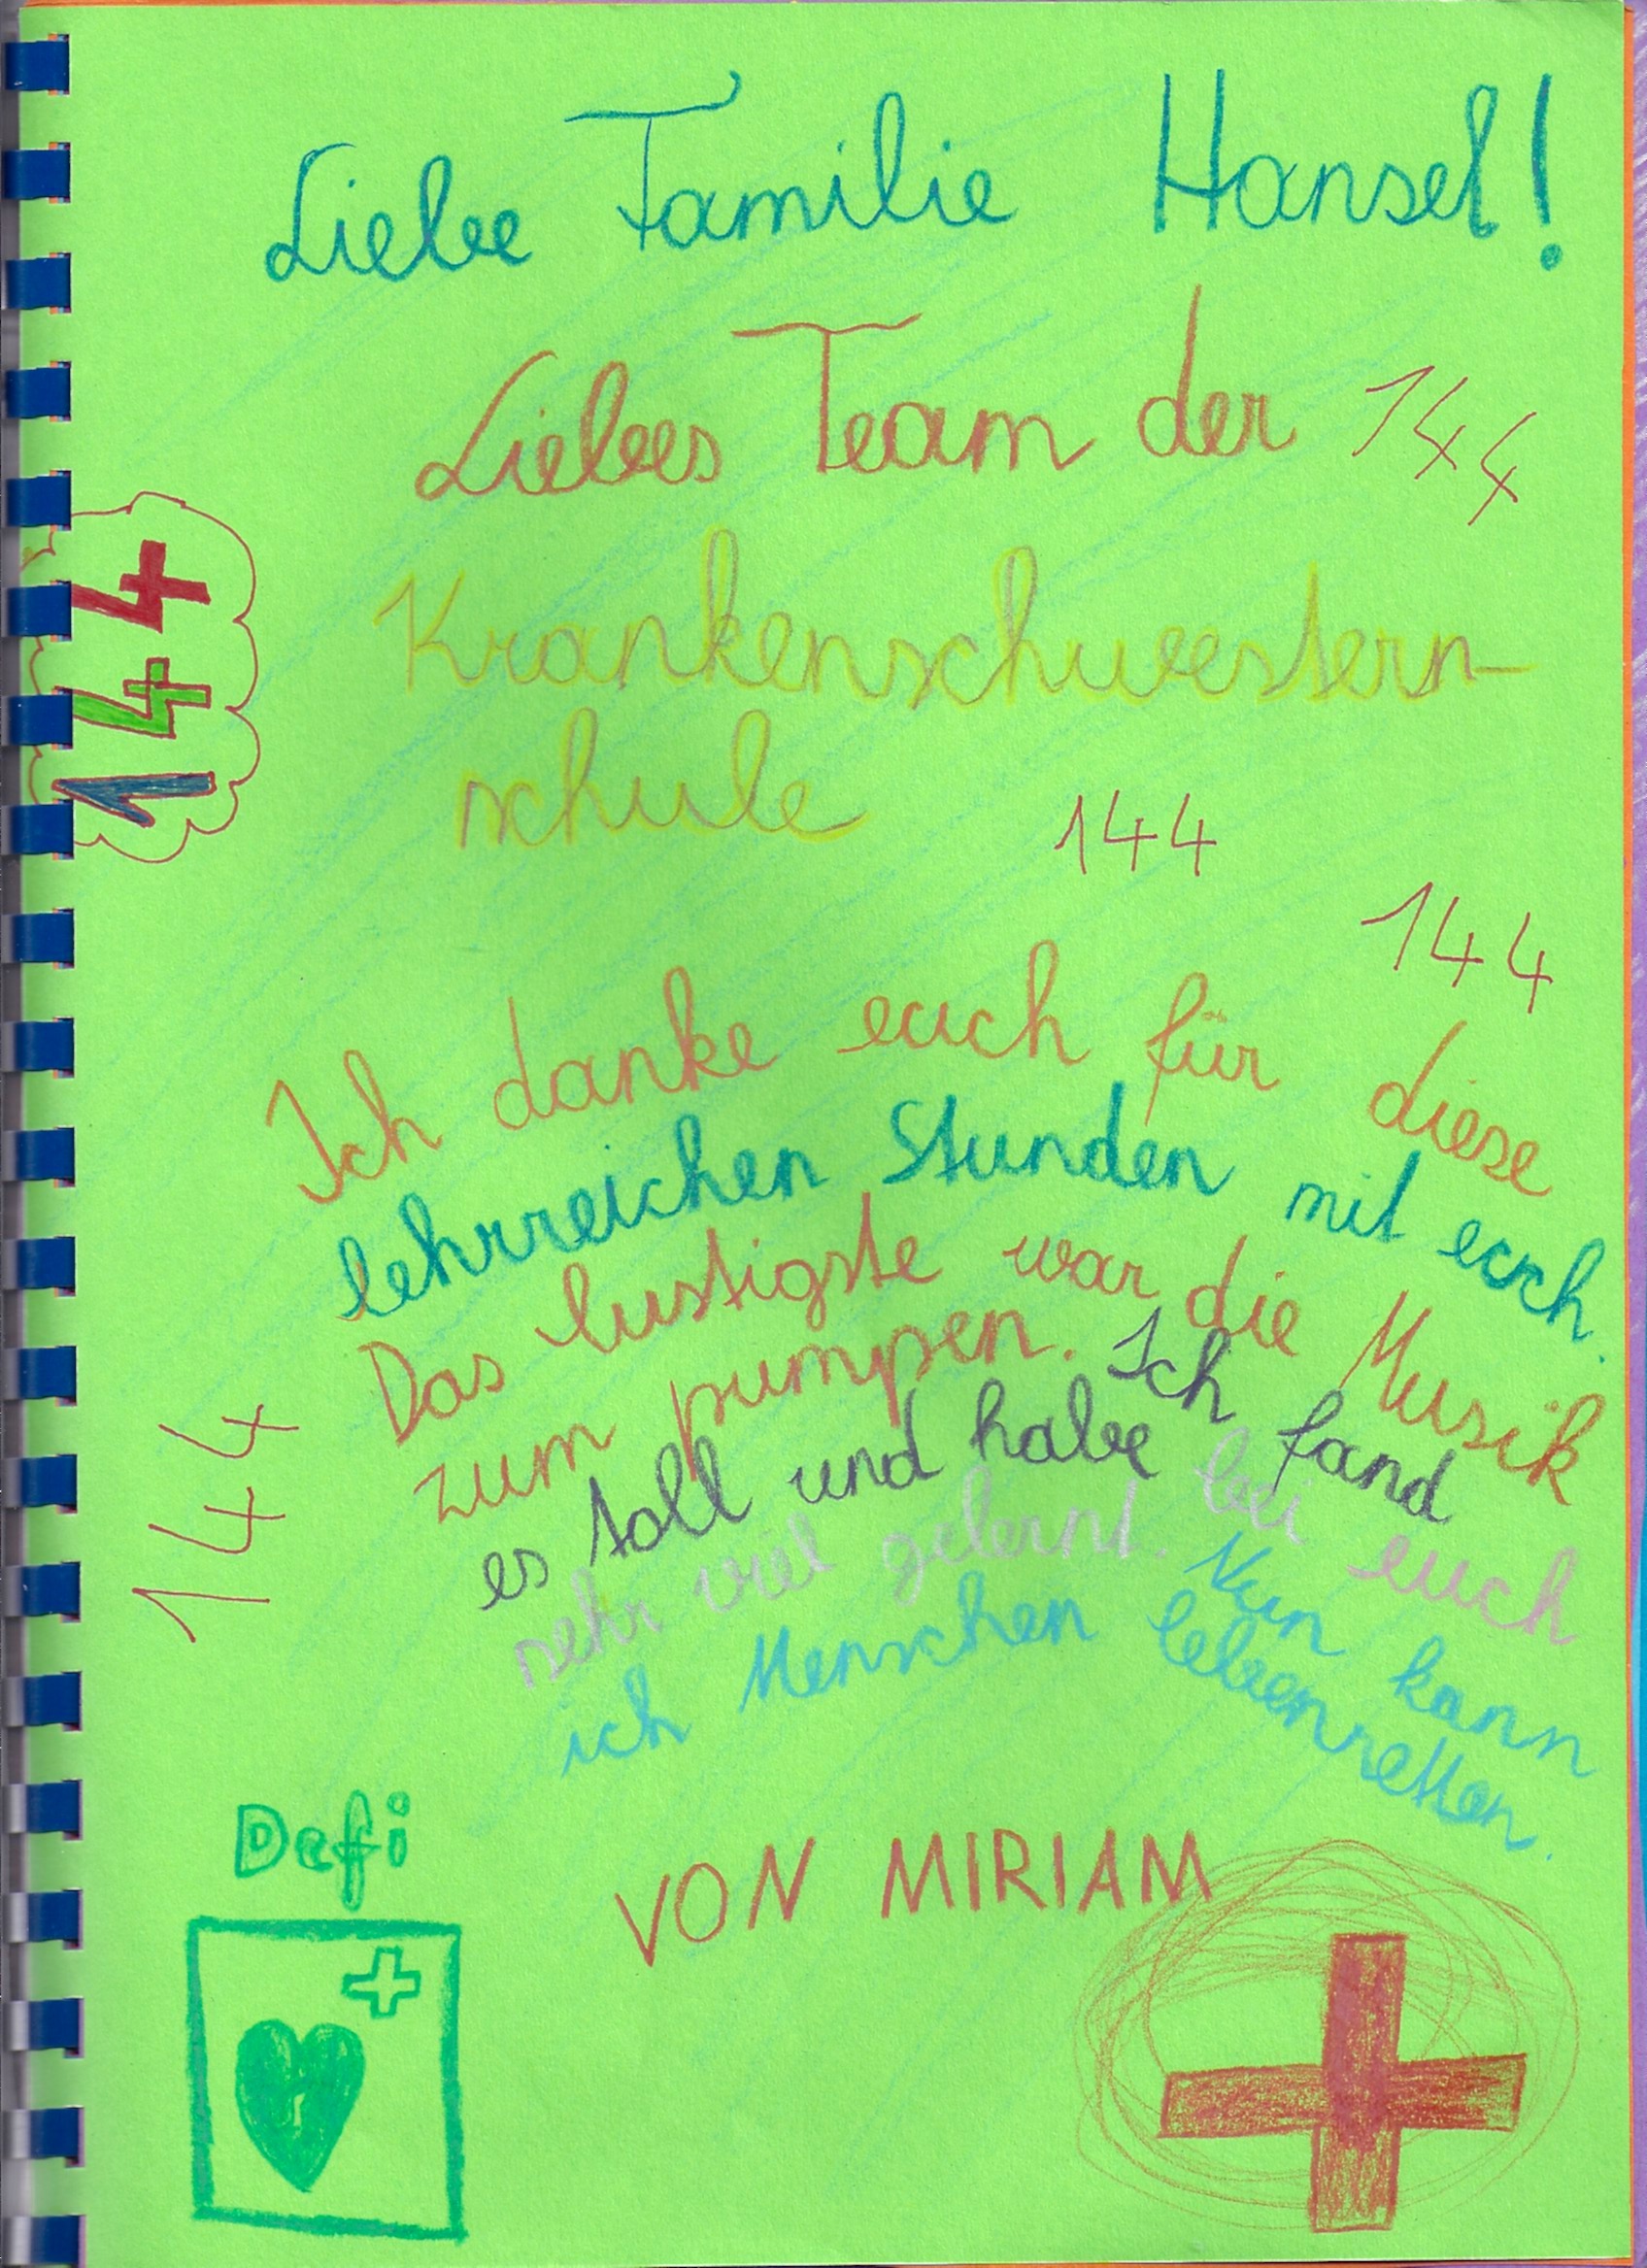 Liebe Familie Hansel!
Liebes Team der 144
Krankenschwestern-
schule
144
144
144
Ich danke euch für diese
lehrreichen Stunden mit euch.
Das lustigste war die Musik
zum pumpen. Ich fand
es toll und habe bei euch
sehr viel gelernt. Nun kann
ich Menschen lebenretten.
144
Defi
VON MIRIAM